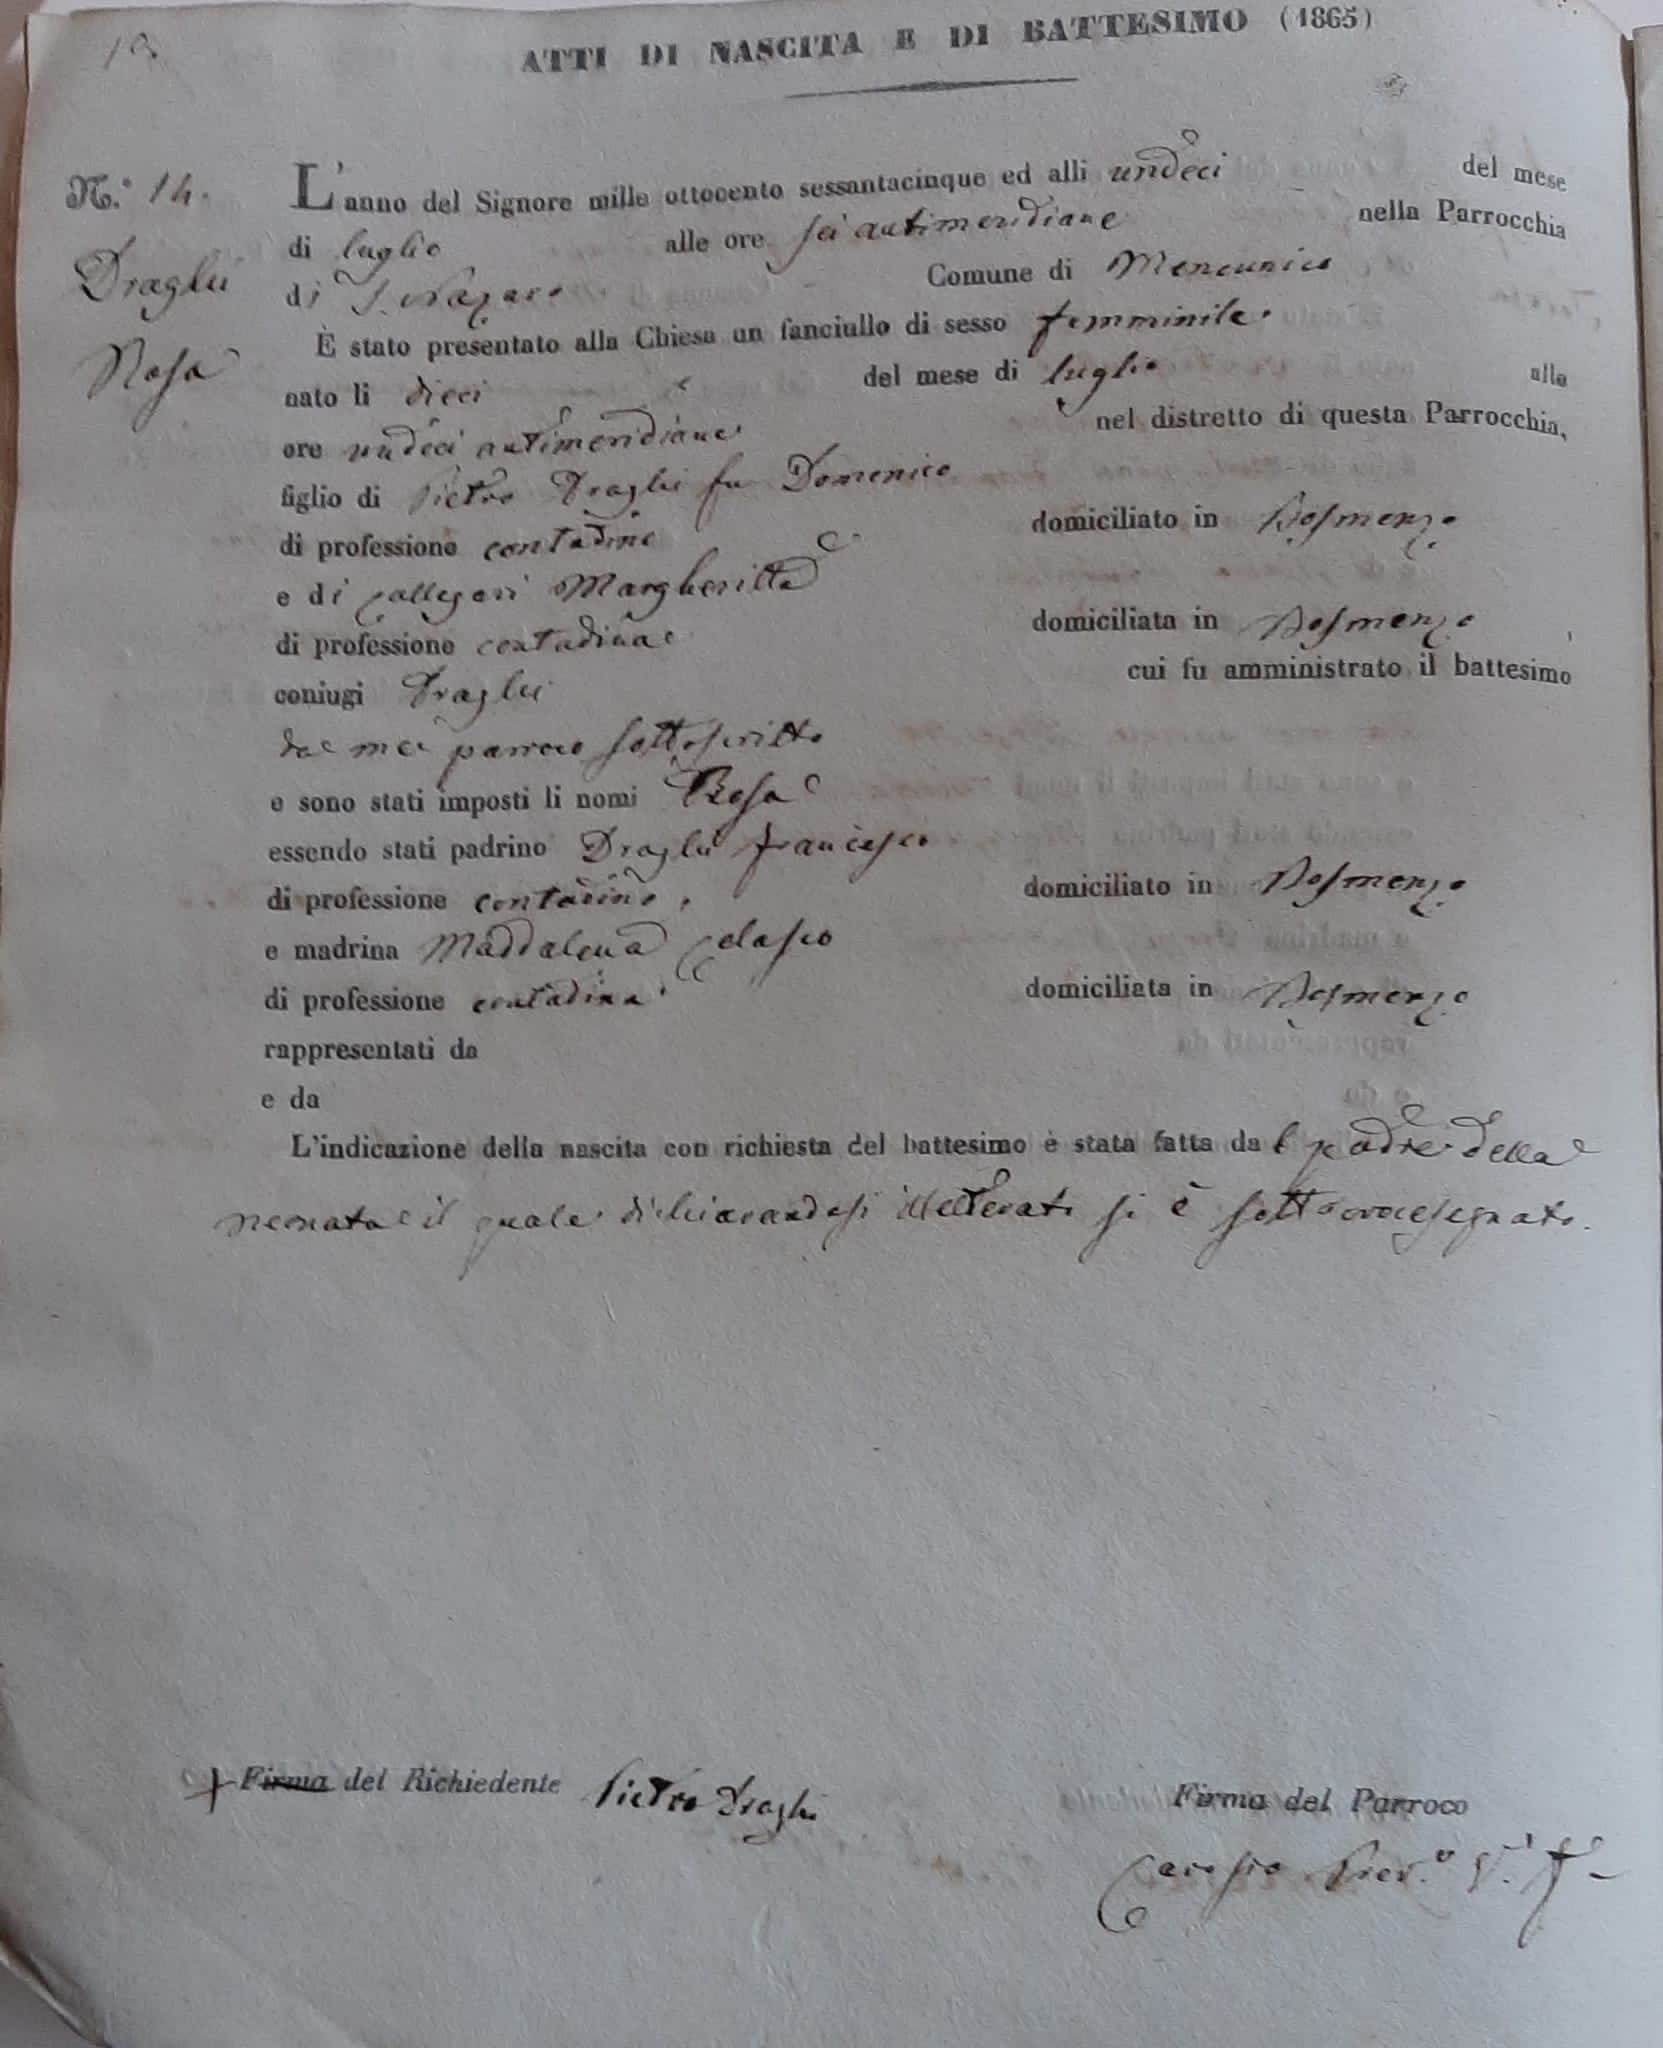 ATTI DI NASCITA E DI BATTESIMO (1865)
N.° 14.
Draghi
Rosa
L'anno del Signore mille ottocento sessantacinque ed alli undeci del mese
di luglio alle ore sei antimeridiane nella Parrocchia
di S. Nazaro Comune di Menconico
È stato presentato alla Chiesa un fanciullo di sesso femminile
nato li dieci del mese di luglio alle
ore undeci antimeridiane nel distretto di questa Parrocchia,
figlio di Pietro Draghi fu Domenico
di professione contadino domiciliato in Bosmenzo
e di Callegari Margheritta
di professione contadina domiciliata in Bosmenzo
coniugi Draghi cui fu amministrato il battesimo
da me parroco sottoscritto
e sono stati imposti li nomi Rosa
essendo stati padrino Draghi Francesco
di professione contadino, domiciliato in Bosmenzo
e madrina Maddalena Celasco
di professione contadina domiciliata in Bosmenzo
rappresentati da
e da
L'indicazione della nascita con richiesta del battesimo è stata fatta dal padre della
neonata il quale dichiarandosi illetterato si è sottocrocesegnato.
+ Firma del Richiedente Pietro Draghi
Firma del Parroco
Carosio Prev.° V. F.